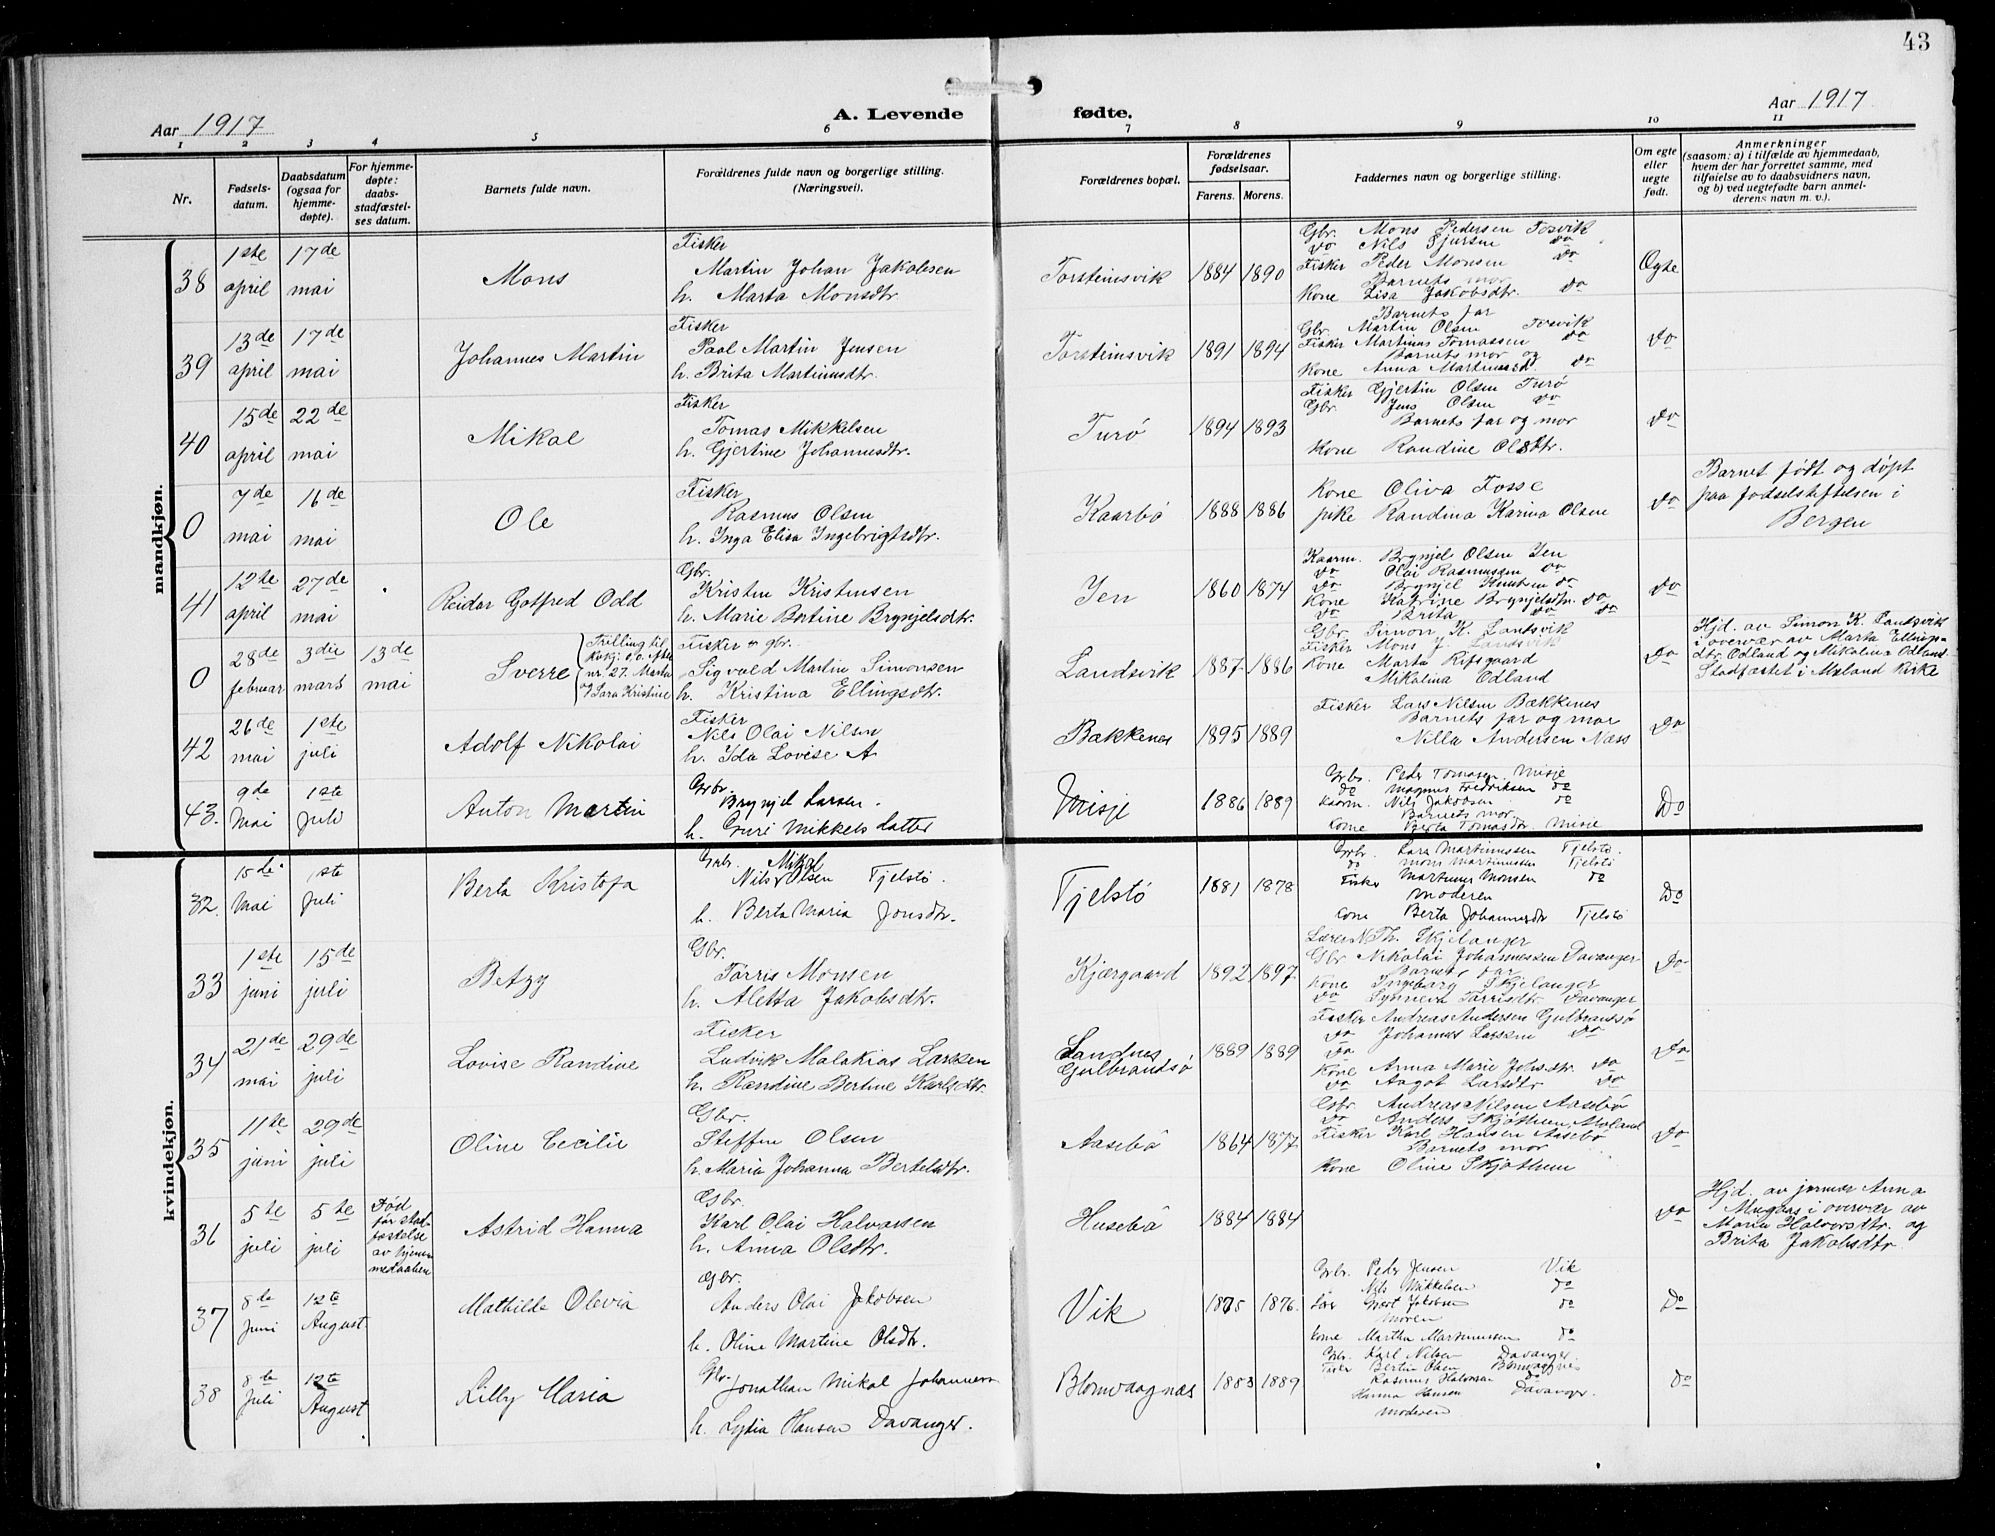 43
Aar 1917
A. Levende fødte.
Aar 1917
1 2 3 4 5 6 7 8 9 10 11
Nr.
Fødsels-
datum.
Daabsdatum
(ogsaa for
hjemme-
døpte).
For hjemme-
døpte:
daabs-
stadfæstel-
ses datum.
Barnets fulde navn.
Forældrenes fulde navn og borgerlige stilling.
(Næringsvei).
Forældrenes bopæl.
Forældrenes
fødselsaar.
Farens. Morens.
Faddernes navn og borgerlige stilling.
Om egte
eller
uegte
født.
Anmerkninger
(saasom: a) i tilfælde av hjemmedaab,
hvem der har forrettet samme, med
tilføielse av to daabsvidners navn,
og b) ved uegtefødte barn anmel-
derens navn m. v.).
mandkjøn.
38
1ste
april
17de
mai
Mons
Fisker
Martin Johan Jakobsen
h. Marta Monsdtr.
Torsteinsvik
1884 1890
Gbr. Mons Pedersen Tosvik
do Nils Gjursen do
Fisker Peder Monsen do
Barnets mor
Kone Lisa Jakobsdtr. do
Egte
39
13de
april
17de
mai
Johannes Martin
Fisker
Paol Martin Jensen
h. Brita Martinusdtr.
Torsteinsvik
1891 1894
Barnets far
Gbr. Martin Olsen Tosvik
Fisker Martinus Tomassen do
Barnets mor og
Kone Anna Martinusdtr. do
do
40
15de
april
22de
mai
Mikal
Fisker
Tomas Mikkelsen
h. Gjertine Johannesdtr.
Turö
1894 1893
Fisker Gjertin Olsen Turö
Gbr. Jens Olsen do
Barnets far og mor
Kone Randine Olsdtr.
do
0
7de
mai
16de
mai
Ole
Fisker
Rasmus Olsen
h. Inga Elisa Ingebrigtsdtr.
Kaarbö
1888 1886
Kone Oliva Fosse
pike Randina Karina Olsen
do
Barnet født og døpt
paa fødselstiftelsen i
Bergen
41
12te
april
27de
mai
Reidar Gotfred Odd
Gbr.
Kristen Kristensen
h. Marie Bertine Brynjelsdtr.
Jen
1860 1874
Kaarm. Brynjel Olsen Jen
do Olai Rasmussen do
do Brynjel Knutsen do
Kone Katrine Brynjelsdtr. do
do Brita do do
do
0
28de
februar
3die
mars
13de
mai
Sverre
Trilling til
nr. 27. Marta
og Sara Kristine
Fisker og gbr.
Sigvald Martin Simonsen
h. Kristina Ellingsdtr.
Landsvik
1887 1886
Gbr. Simon K. Landsvik
Fisker Mons J. Landsvik
Kone Marta Ripsgaard
Mikalina Odland
do
Hjd. av Simon K. Landsvik
i overvær av Marta Ellings-
dtr. Odland og Mikalina Odland
Stadfæstet i Mæland Kirke
42
26de
mai
1ste
juli
Adolf Nikolai
Fisker
Nils Olai Nilsen
h. Ida Lovise A
Bakkenes
1895 1889
Fisker Lars Nilsen Bækkenes
Barnets far og mor
Nilla Andersen Næss
do
43.
9de
Mai
1ste
Juli
Anton Martin
Gbr.
Brynjel Larsen.
h. Guri Mikkelsdatter
Misje
1886 1889
Grbr. Peder Tomasen Misje
do Magnus Fredriksen do
Kaarm. Nils Jakobsen do
Barnets mor
Kone Berta Tomasdtr. Misje
Do
kvindekjøn.
32.
15de
Mai
1ste
Juli
Berta Kristofa
Grbr. Mikal
Nils Olsen Tjelstö.
h. Berta Maria Jonsdtr.
Tjelstö
1881 1878
Grbr. Lars Martinussen Tjelstö.
do Mons Martinussen Tjelstö
Fisker Martinus Monsen do
Moderen
Kone Berta Johannesdtr Tjelstö
Do
33
1ste
juni
15de
juli
Betzy
Gbr.
Torris Monsen
h. Aletta Jakobsdtr.
Kjærgaard
1892 1897
Lærer N. Th. Skjelanger
Gbr Nikolai Johannessen Davanger
Barnets far
Kone Ingeborg Skjelanger
do Synneva Torrisdtr Davanger
do
34
21de
mai
29de
juli
Lovise Randine
Fisker
Ludvik Malakias Larsen
h. Randine Bertine Karlsdtr.
Landnes
Gulbrandsö
1889 1889
Fisker Andreas Andersen Gulbrandsö
do Johannes Larsen do
do
Kone Anna Marie Johsdtr. do
do Aagot Larsdtr do
do
35
11te
juni
29de
juli
Oline Cecilie
Gbr.
Steffen Olsen
h. Maria Johanna Bertelsdtr.
Aasebö
1864 1877
Gbr. Andreas Nilsen Aasebö
do Anders Skjöthun Mæland
Fisker Karl Hansen Aasebö
Barnets mor
Kone Oline Skjöthun
do
36
5te
juli
5te
juli
Död
før stad-
fæstelse
av hjem-
medaaben
Astrid Hanna
Gbr.
Karl Olai Halvorsen
h. Anna Olsdtr.
Husebö
1884 1884
do
Hjd. av jormor Anna
Mugaas i overvær av
Marie Halvorsdtr. og
Brita Jakobsdtr
37
8de
Juni
12te
August
Mathilde Olevia
Gbr.
Anders Olai Jakobsen
h. Oline Martine Olsdtr.
Vik
1875 1876.
Grbr. Peder Jensen Vik
Nils Mikkelsen do
Gert Jakobsen do
Moren
Kone Martha Martinussen do
Do
38
8de
Juli
12te
August
Lilly Maria
Gbr.
Jonathan Mikal Johannesen
h. Lydia Hansen Davanger.
Blomvaagnæs
1883 1889
Grbr. Karl Nilsen Davanger.
Bertin Olsen Blomvaagnes
Rasmus Halvorsen do
Hanna Hansen Davanger.
Moderen
Do